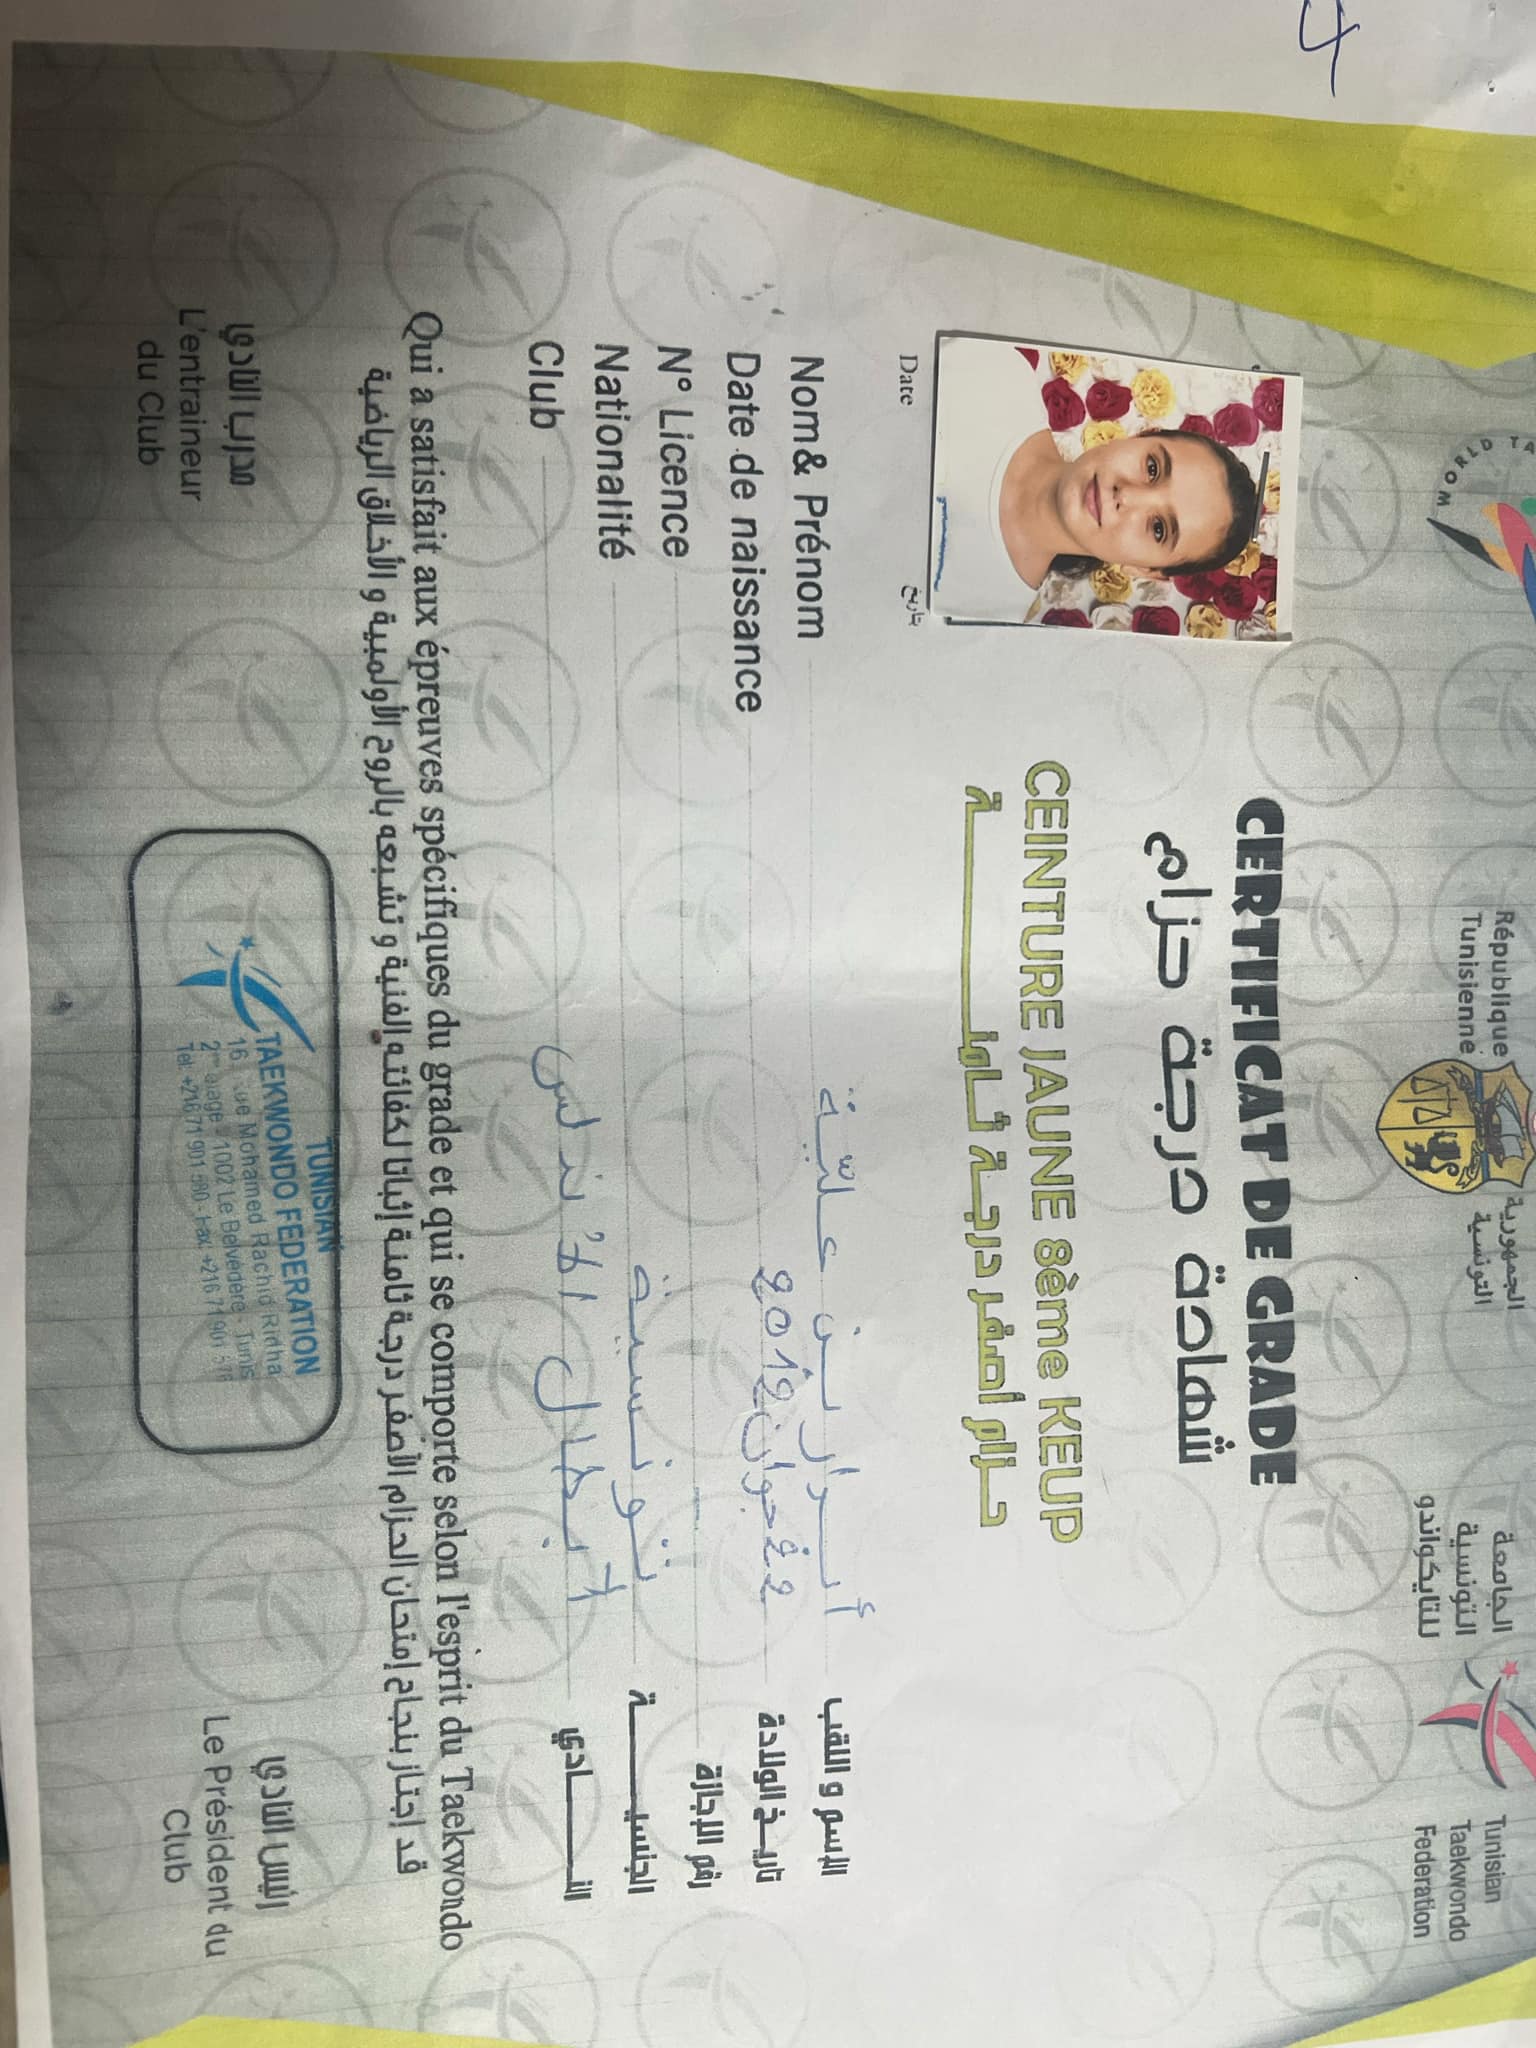 République
Tunisienne
الجمهورية
التونسية
الجامعة
التونسية
للتايكواندو
Tunisian
Taekwondo
Federation
CERTIFICAT DE GRADE
شهادة درجة حزام
CEINTURE JAUNE 8ème KEUP
حزام أصفر درجة ثامنة
Date بتاريخ
Nom& Prénom أبرار بن علية الإسم و اللقب
Date de naissance 22 جوان 2012 تاريخ الولادة
N° Licence رقم الإجازة
Nationalité تونسية الجنسية
Club أبطال الأندلس النادي
Qui a satisfait aux épreuves spécifiques du grade et qui se comporte selon l'esprit du Taekwondo
قد إجتاز بنجاح إمتحان الحزام الأصفر درجة ثامنة إثباتا لكفائته الفنية و تشبعه بالروح الأولمبية و الأخلاق الرياضية
مدرب النادي
L'entraineur
du Club
TUNISIAN
TAEKWONDO FEDERATION
16 Rue Mohamed Rachid Ridha
1002 Le Belvédère - Tunis
رئيس النادي
Le Président du
Club